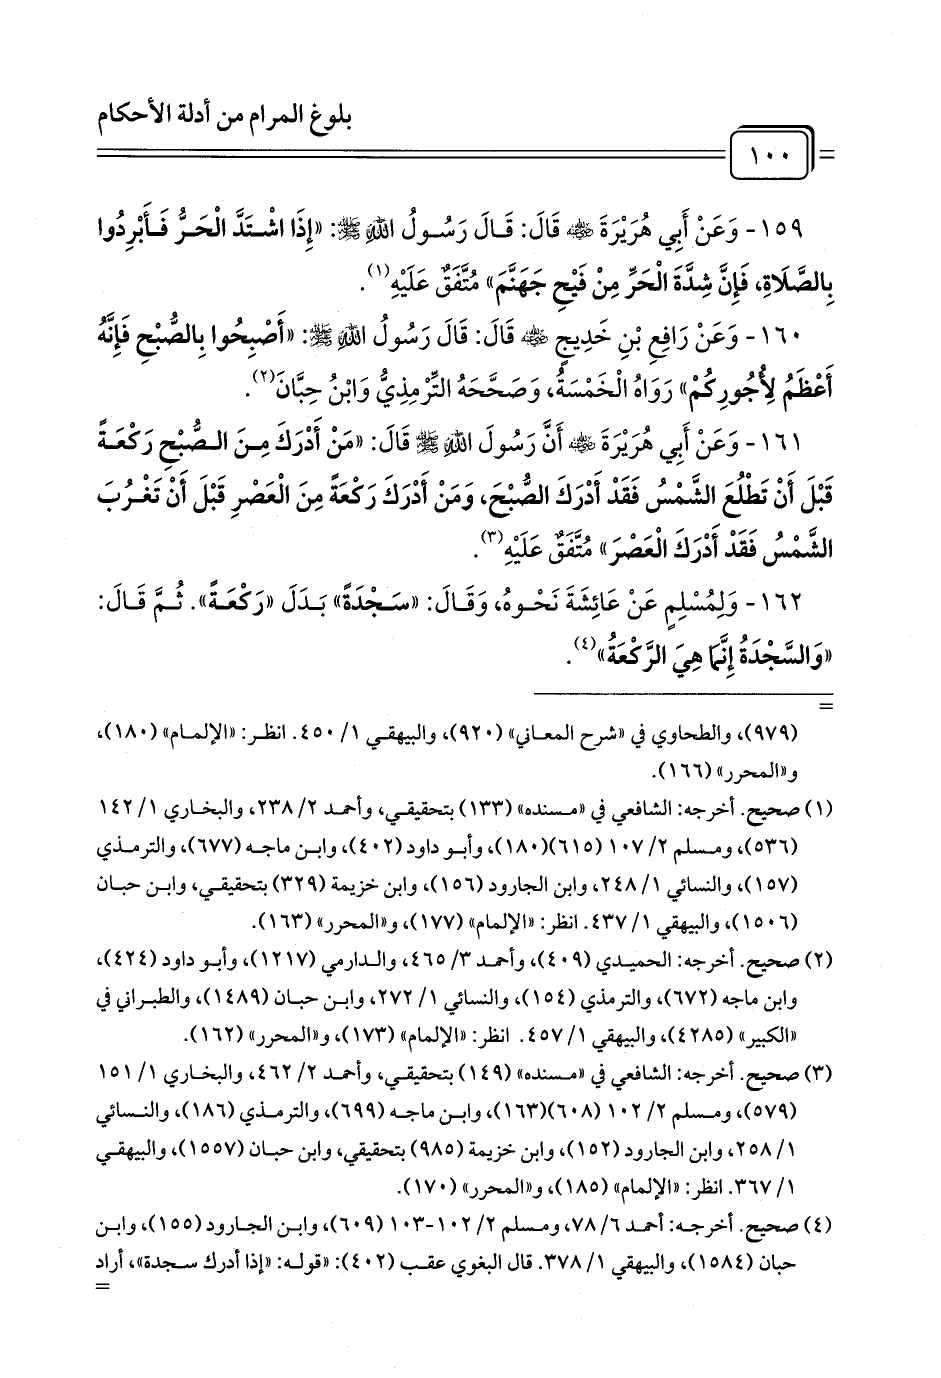 بلوغ المرام من أدلة الأحكام
١٠٠
١٥٩- وَعَنْ أَبِي هُرَيْرَةَ ﵁ قَالَ: قَالَ رَسُولُ اللهِ ﷺ: «إِذَا اشْتَدَّ الْحَرُّ فَأَبْرِدُوا
بِالصَّلَاةِ، فَإِنَّ شِدَّةَ الْحَرِّ مِنْ فَيْحِ جَهَنَّمَ» مُتَّفَقٌ عَلَيْهِ(١).
١٦٠- وَعَنْ رَافِعِ بْنِ خَدِيجٍ ﵁ قَالَ: قَالَ رَسُولُ اللهِ ﷺ: «أَصْبِحُوا بِالصُّبْحِ فَإِنَّهُ
أَعْظَمُ لِأُجُورِكُمْ» رَوَاهُ الْخَمْسَةُ، وَصَحَّحَهُ التِّرْمِذِيُّ وَابْنُ حِبَّانَ(٢).
١٦١- وَعَنْ أَبِي هُرَيْرَةَ ﵁ أَنَّ رَسُولَ اللهِ ﷺ قَالَ: «مَنْ أَدْرَكَ مِنَ الصُّبْحِ رَكْعَةً
قَبْلَ أَنْ تَطْلُعَ الشَّمْسُ فَقَدْ أَدْرَكَ الصُّبْحَ، وَمَنْ أَدْرَكَ رَكْعَةً مِنَ الْعَصْرِ قَبْلَ أَنْ تَغْرُبَ
الشَّمْسُ فَقَدْ أَدْرَكَ الْعَصْرَ» مُتَّفَقٌ عَلَيْهِ(٣).
١٦٢- وَلِمُسْلِمٍ عَنْ عَائِشَةَ نَحْوهُ، وَقَالَ: «سَجْدَةً» بَدَلَ «رَكْعَةً». ثُمَّ قَالَ:
«وَالسَّجْدَةُ إِنَّمَا هِيَ الرَّكْعَةُ»(٤).
=
(٩٧٩)، والطحاوي في «شرح المعاني» (٩٢٠)، والبيهقي ١/ ٤٥٠. انظر: «الإلمام» (١٨٠)،
و«المحرر» (١٦٦).
(١) صحيح. أخرجه: الشافعي في «مسنده» (١٣٣) بتحقيقي، وأحمد ٢/ ٢٣٨، والبخاري ١/ ١٤٢
(٥٣٦)، ومسلم ٢/ ١٠٧ (٦١٥)(١٨٠)، وأبو داود (٤٠٢)، وابن ماجه (٦٧٧)، والترمذي
(١٥٧)، والنسائي ١/ ٢٤٨، وابن الجارود (١٥٦)، وابن خزيمة (٣٢٩) بتحقيقي، وابن حبان
(١٥٠٦)، والبيهقي ١/ ٤٣٧. انظر: «الإلمام» (١٧٧)، و«المحرر» (١٦٣).
(٢) صحيح. أخرجه: الحميدي (٤٠٩)، وأحمد ٣/ ٤٦٥، والدارمي (١٢١٧)، وأبو داود (٤٢٤)،
وابن ماجه (٦٧٢)، والترمذي (١٥٤)، والنسائي ١/ ٢٧٢، وابن حبان (١٤٨٩)، والطبراني في
«الكبير» (٤٢٨٥)، والبيهقي ١/ ٤٥٧. انظر: «الإلمام» (١٧٣)، و«المحرر» (١٦٢).
(٣) صحيح. أخرجه: الشافعي في «مسنده» (١٤٩) بتحقيقي، وأحمد ٢/ ٤٦٢، والبخاري ١/ ١٥١
(٥٧٩)، ومسلم ٢/ ١٠٢ (٦٠٨)(١٦٣)، وابن ماجه (٦٩٩)، والترمذي (١٨٦)، والنسائي
١/ ٢٥٨، وابن الجارود (١٥٢)، وابن خزيمة (٩٨٥) بتحقيقي، وابن حبان (١٥٥٧)، والبيهقي
١/ ٣٦٧. انظر: «الإلمام» (١٨٥)، و«المحرر» (١٧٠).
(٤) صحيح. أخرجه: أحمد ٦/ ٧٨، ومسلم ٢/ ١٠٢-١٠٣ (٦٠٩)، وابن الجارود (١٥٥)، وابن
حبان (١٥٨٤)، والبيهقي ١/ ٣٧٨. قال البغوي عقب (٤٠٢): «قوله: «إذا أدرك سجدة»، أراد
=